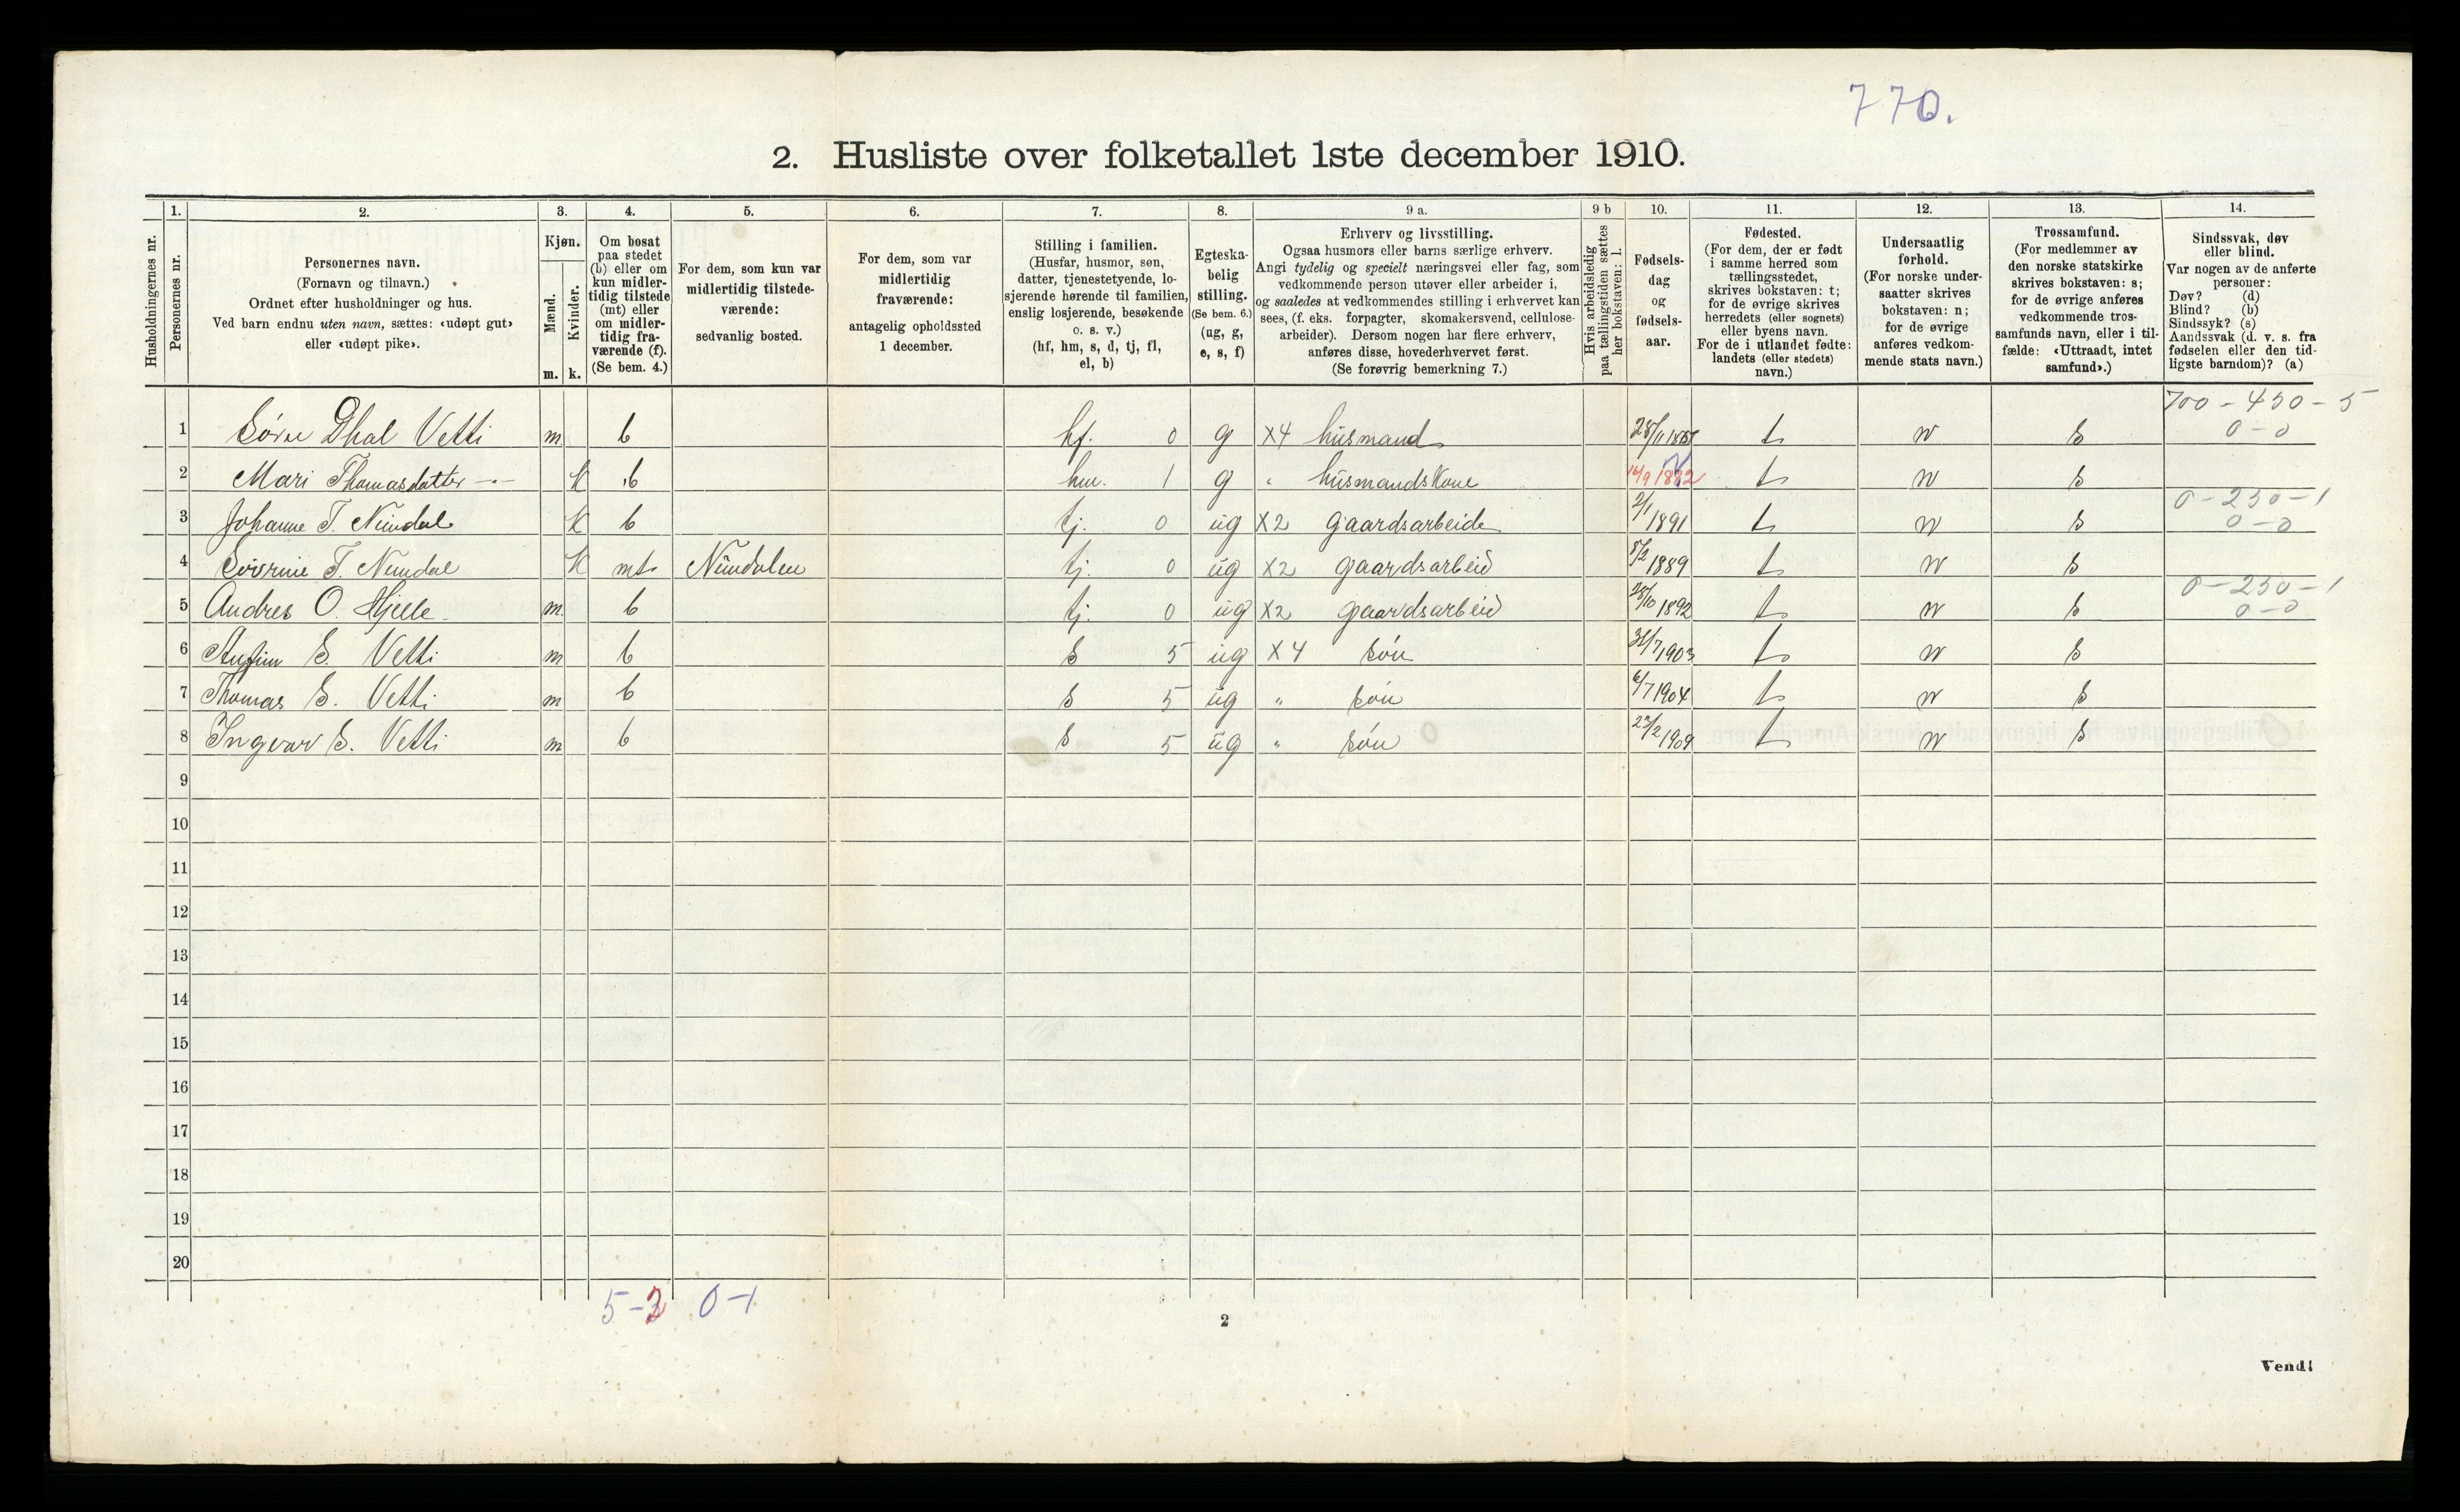 770.
2. Husliste over folketallet 1ste december 1910.
1. 2. 3. 4. 5. 6. 7. 8. 9 a. 9 b 10. 11. 12. 13. 14.
Husholdningernes nr.
Personernes nr.
Personernes navn.
(Fornavn og tilnavn.)
Ordnet efter husholdninger og hus.
Ved barn endnu uten navn, sættes: «udøpt gut»
eller «udøpt pike».
Kjøn.
Mænd.
Kvinder.
m. k.
Om bosat
paa stedet
(b) eller om
kun midler-
tidig tilstede
(mt) eller
om midler-
tidig fra-
værende (f).
(Se bem. 4.)
For dem, som kun var
midlertidig tilstede-
værende:
sedvanlig bosted.
For dem, som var
midlertidig
fraværende:
antagelig opholdssted
1 december.
Stilling i familien.
(Husfar, husmor, søn,
datter, tjenestetyende, lo-
sjerende hørende til familien,
enslig losjerende, besøkende
o. s. v.)
(hf, hm, s, d, tj, fl,
el, b)
Egteska-
belig
stilling.
(Se bem. 6.)
(ug, g,
e, s, f)
Erhverv og livsstilling.
Ogsaa husmors eller barns særlige erhverv.
Angi tydelig og specielt næringsvei eller fag, som
vedkommende person utøver eller arbeider i,
og saaledes at vedkommendes stilling i erhvervet kan
sees, (f. eks. forpagter, skomakersvend, cellulose-
arbeider). Dersom nogen har flere erhverv,
anføres disse, hovederhvervet først.
(Se forøvrig bemerkning 7.)
Hvis arbeidsledig
paa tællingstiden sættes
her bokstaven: l.
Fødsels-
dag
og
fødsels-
aar.
Fødested.
(For dem, der er født
i samme herred som
tællingsstedet,
skrives bokstaven: t;
for de øvrige skrives
herredets (eller sognets)
eller byens navn.
For de i utlandet fødte:
landets (eller stedets)
navn.)
Undersaatlig
forhold.
(For norske under-
saatter skrives
bokstaven: n;
for de øvrige
anføres vedkom-
mende stats navn.)
Trossamfund.
(For medlemmer av
den norske statskirke
skrives bokstaven: s;
for de øvrige anføres
vedkommende tros-
samfunds navn, eller i til-
fælde: «Uttraadt, intet
samfund».)
Sindssvak, døv
eller blind.
Var nogen av de anførte
personer:
Døv? (d)
Blind? (b)
Sindssyk? (s)
Aandssvak (d. v. s. fra
fødselen eller den tid-
ligste barndom)? (a)
700 - 450 - 5
1 Dhal Vetti m b hf. 0 g X4 husmand t n s 0-0
2 Mari Thomasdatter -"- k b hm. 1 g " husmandskone t n s
0-250-1
3 Johanne T. Nundal k b tj. 0 ug X2 gaardsarbeide 2/1 1891 t n s 0-0
4 T. Nundal k mt Nundalen tj. 0 ug X2 gaardsarbeid 5/2 1889 t n s
0-250-1
5 Andres O. Hjelle m b tj. 0 ug X2 gaardsarbeid 28/10 1892 t n s 0-0
6 Anfin S. Vetti m b s 5 ug X4 søn 31/7 1903 t n s
7 Thomas S. Vetti m b s 5 ug " søn 6/7 1904 t n s
8 Ingvar S. Vetti m b s 5 ug " søn 1909 t n s
9
10
11
12
13
14
15
16
17
18
19
20
0-1
2
Vend!